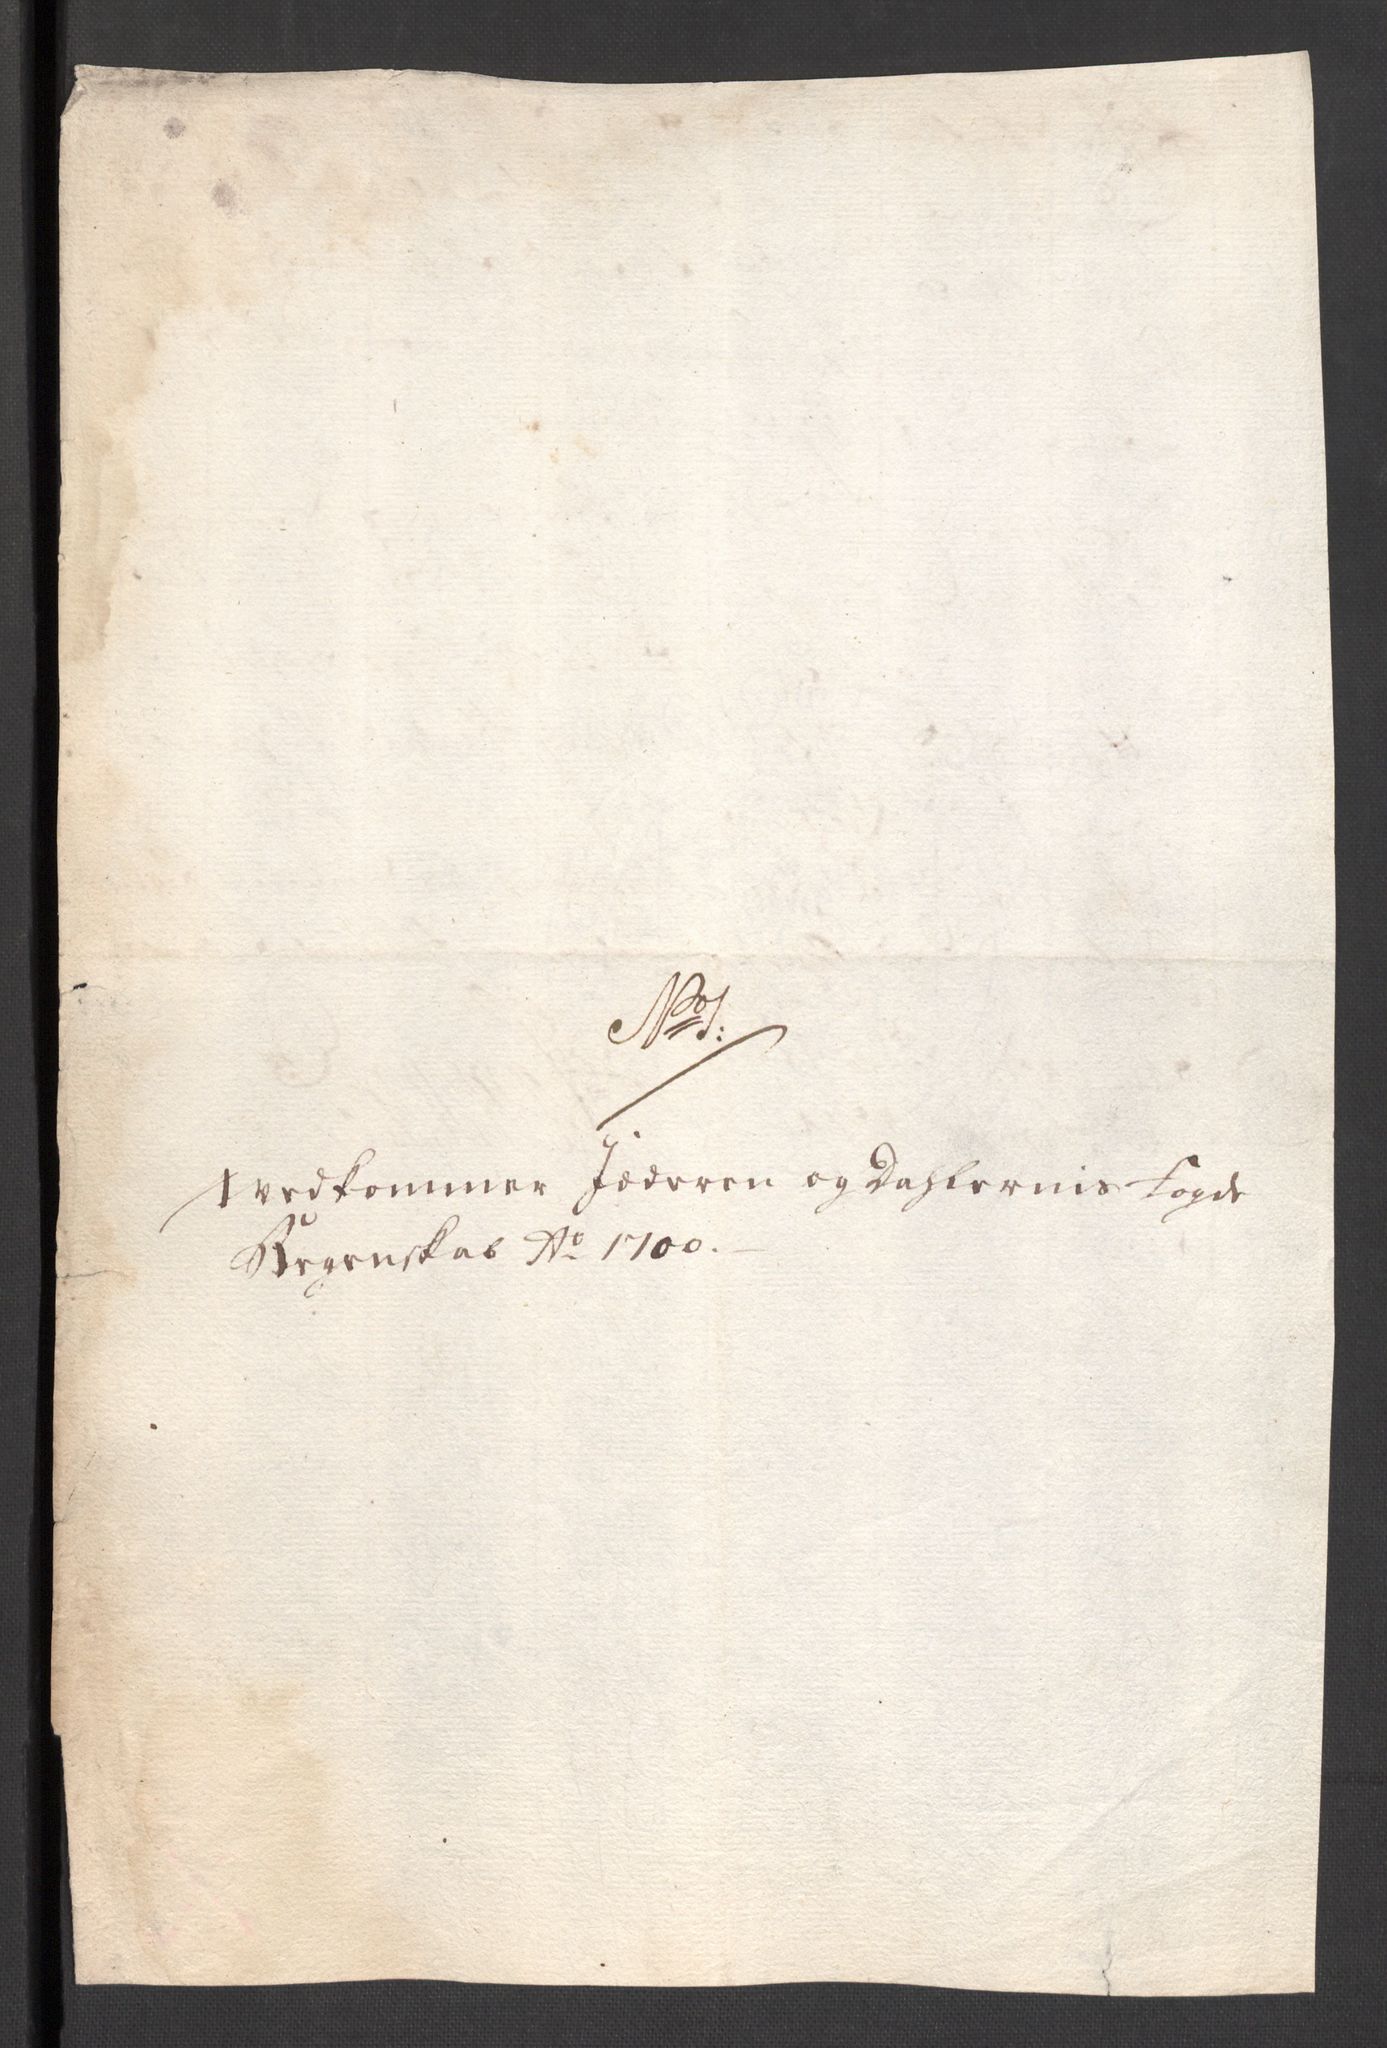 No 1:
Vedkommer Jæderen og Dahlernis Fogde
Regenskab Ao 1700.